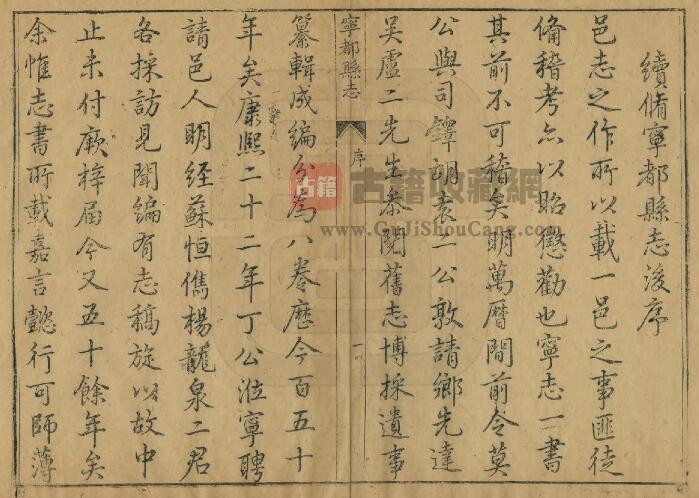 續脩寧都縣志後序
邑志之作所以載一邑之事匪徒
備稽考亦以昭懲勸也寧志一書
其前不可稽矣明萬曆間前令莫
公與司鐸胡袁二公敦請鄉先達
吳盧二先生叅閱舊志博採遺事
寧都縣志
序
一
纂輯成編分為八卷歷今百五十
年矣康熙二十二年丁公涖寧聘
請邑人明經蘇恒儁楊龍泉二君
各採訪見聞編有志稿旋以故中
止未付厥梓屆今又五十餘年矣
余惟志書所載嘉言懿行可師薄
古籍
古籍收藏網
www.GuJiShouCang.com